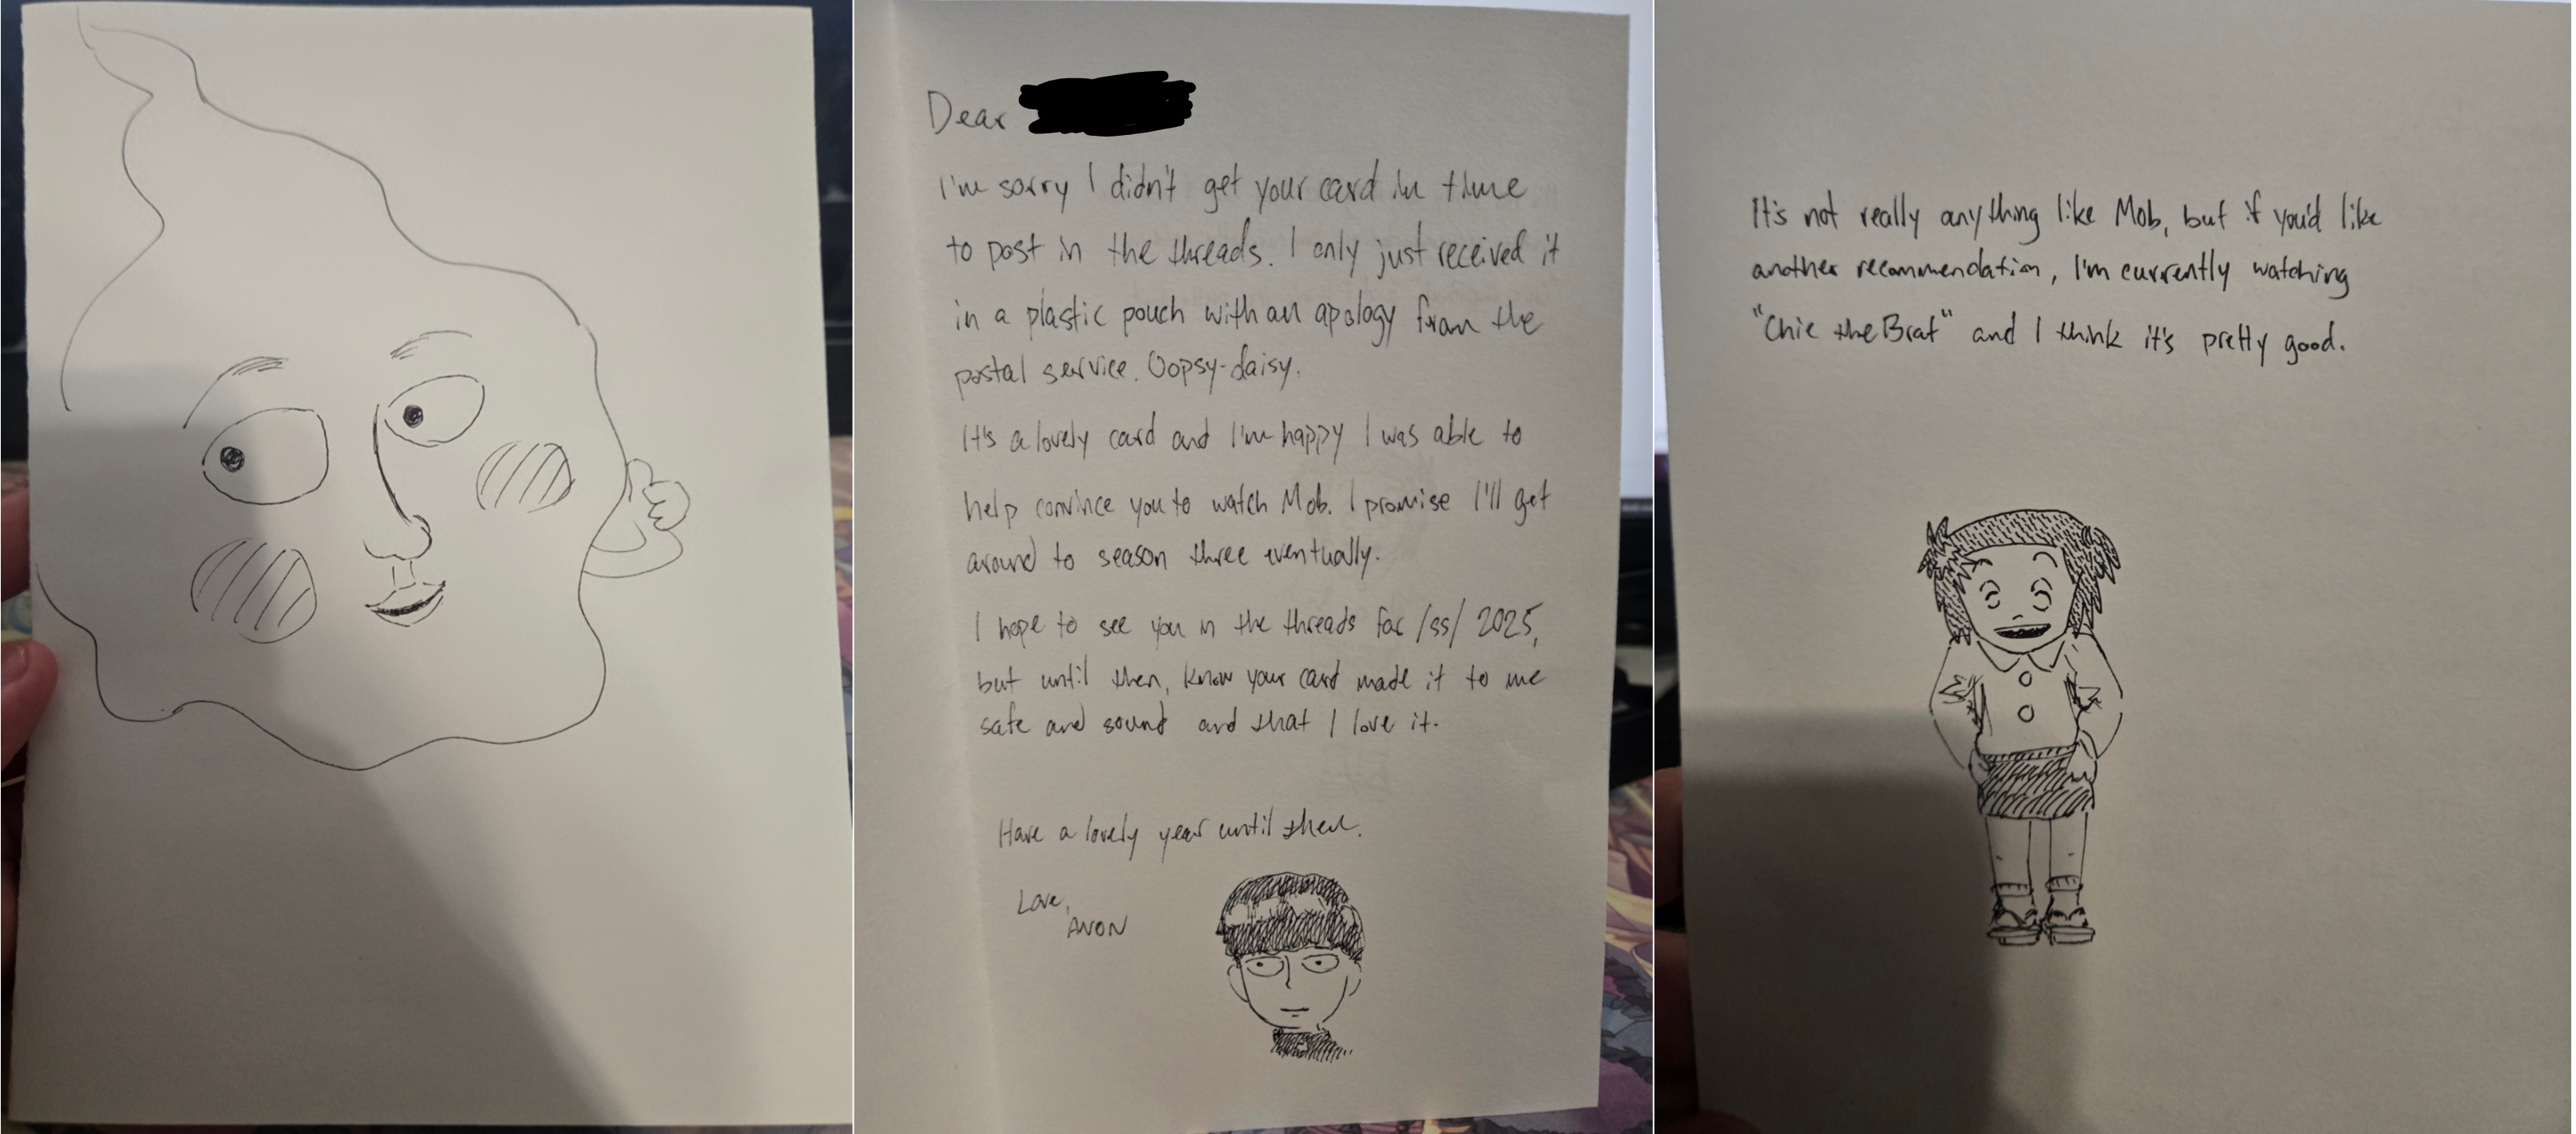 Dear
I'm sorry I didn't get your card in time
to post in the threads. I only just received it
in a plastic pouch with an apology from the
postal service. Oopsy-daisy.
It's a lovely card and I'm happy I was able to
help convince you to watch Mob. I promise I'll get
around to season three eventually.
I hope to see you in the threads for /ss/ 2025,
but until then, know your card made it to me
safe and sound and that I love it.
Have a lovely year until then.
Love,
ANON
It's not really anything like Mob, but if you'd like
another recommendation, I'm currently watching
"Chie the Brat" and I think it's pretty good.